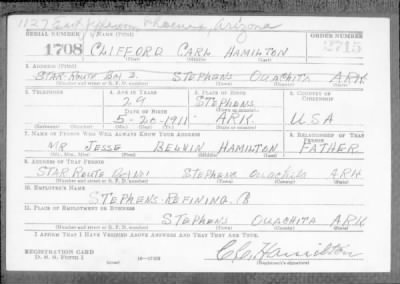 1127 East Jefferson, Phoenix, Arizona
SERIAL NUMBER 1. NAME (Print) ORDER NUMBER
1708 CLIFFORD CARL HAMILTON 2715
(First) (Middle) (Last)
2. ADDRESS (Print)
STAR ROUTE BOX 2. STEPHENS OUACHITA ARK
(Number and street or R. F. D. number) (Town) (County) (State)
3. TELEPHONE 4. AGE IN YEARS 5. PLACE OF BIRTH 6. COUNTRY OF CITIZENSHIP
29 STEPHENS
DATE OF BIRTH (Town or county)
5-20-1911 ARK. USA
(Exchange) (Number) (Mo.) (Day) (Yr.) (State or country)
7. NAME OF PERSON WHO WILL ALWAYS KNOW YOUR ADDRESS 8. RELATIONSHIP OF THAT PERSON
MR JESSE BELVIN HAMILTON FATHER
(Mr., Mrs., Miss) (First) (Middle) (Last)
9. ADDRESS OF THAT PERSON
STAR ROUTE STEPHENS OUACHITA ARK
(Number and street or R. F. D. number) (Town) (County) (State)
10. EMPLOYER'S NAME
STEPHENS REFINING
11. PLACE OF EMPLOYMENT OR BUSINESS
STEPHENS OUACHITA ARK
(Number and street or R. F. D. number) (Town) (County) (State)
I AFFIRM THAT I HAVE VERIFIED ABOVE ANSWERS AND THAT THEY ARE TRUE.
REGISTRATION CARD
D. S. S. Form 1 (over) 16-17105 C.C. Hamilton
(Registrant's signature)